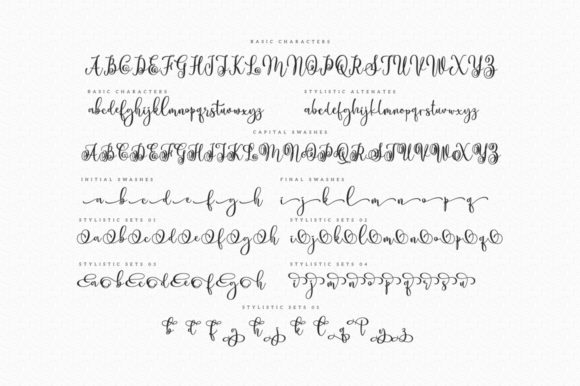 BASIC CHARACTERS
ABCDEFGHIJKLMNOPQRSTUVWXYZ
BASIC CHARACTERS
abcdefghijklmnopqrstuvwxyz
STYLISTIC ALTENATES
abcdefghijklmnopqrstuvwxyz
CAPITAL SWASHES
ABCDEFGHIJKLMNOPQRSTUVWXYZ
INITIAL SWASHES
a b c d e f g h
FINAL SWASHES
i j k l m n o p q
STYLISTIC SETS 01
a b c d e f g h
STYLISTIC SETS 02
i j k l m n o p q
STYLISTIC SETS 03
a b c d e f g h
STYLISTIC SETS 04
STYLISTIC SETS 05